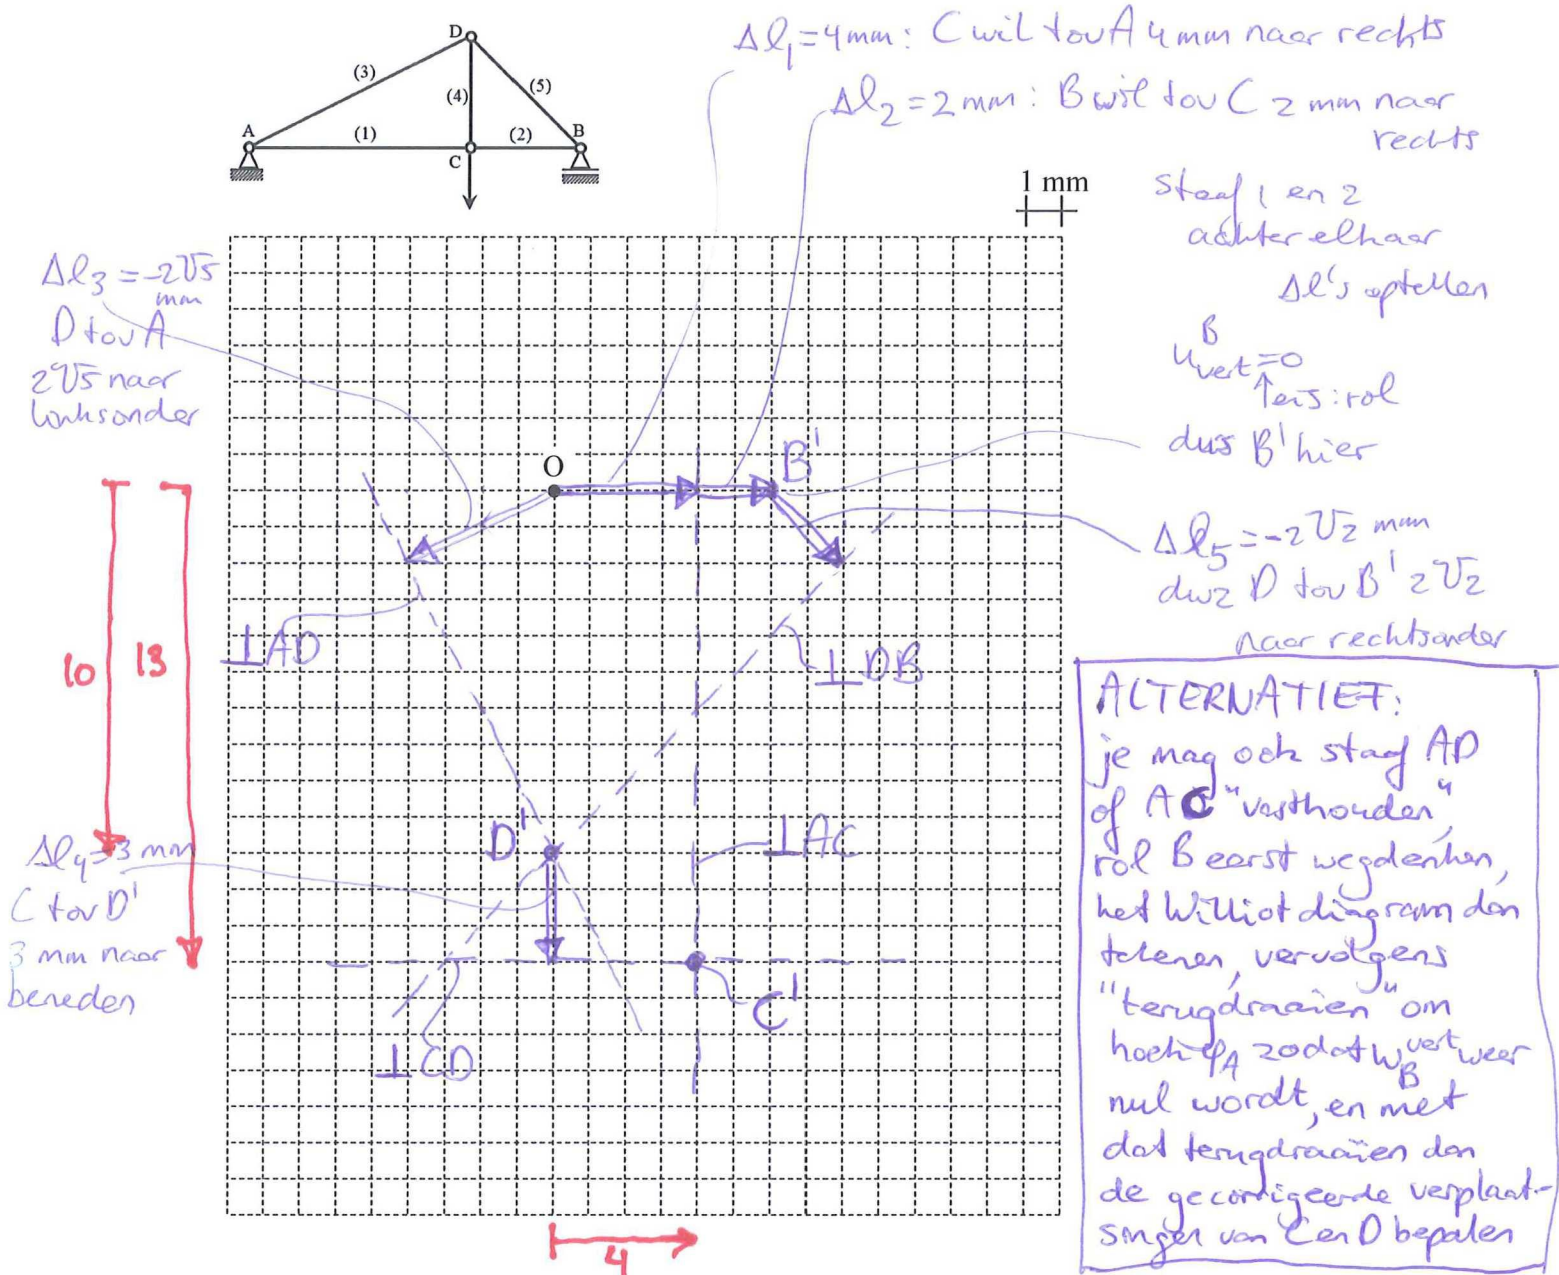 Δl₁ = 4 mm : C wil tov A 4 mm naar rechts
Δl₂ = 2 mm : B wil tov C 2 mm naar
rechts
D
(3)
(5)
(4)
A
(1)
(2)
B
C
1 mm
staaf 1 en 2
achter elkaar
Δl's optellen
B
u vert = 0
↑ eis: rol
dus B' hier
Δl₃ = -2√5
mm
D tov A
2√5 naar
linksonder
O
B'
Δl₅ = -2√2 mm
dwz D tov B' 2√2
naar rechtsonder
⊥AD
⊥DB
10
13
D'
⊥AC
Δl₄ = 3 mm
C tov D'
3 mm naar
beneden
C'
⊥CD
4
ALTERNATIEF:
je mag ook staaf AD
of AC "vasthouden",
rol B eerst wegdenken,
het Williotdiagram dan
tekenen, vervolgens
"terugdraaien" om
hoek φA zodat wB vert weer
nul wordt, en met
dat terugdraaien dan
de gecorrigeerde verplaat-
singen van C en D bepalen